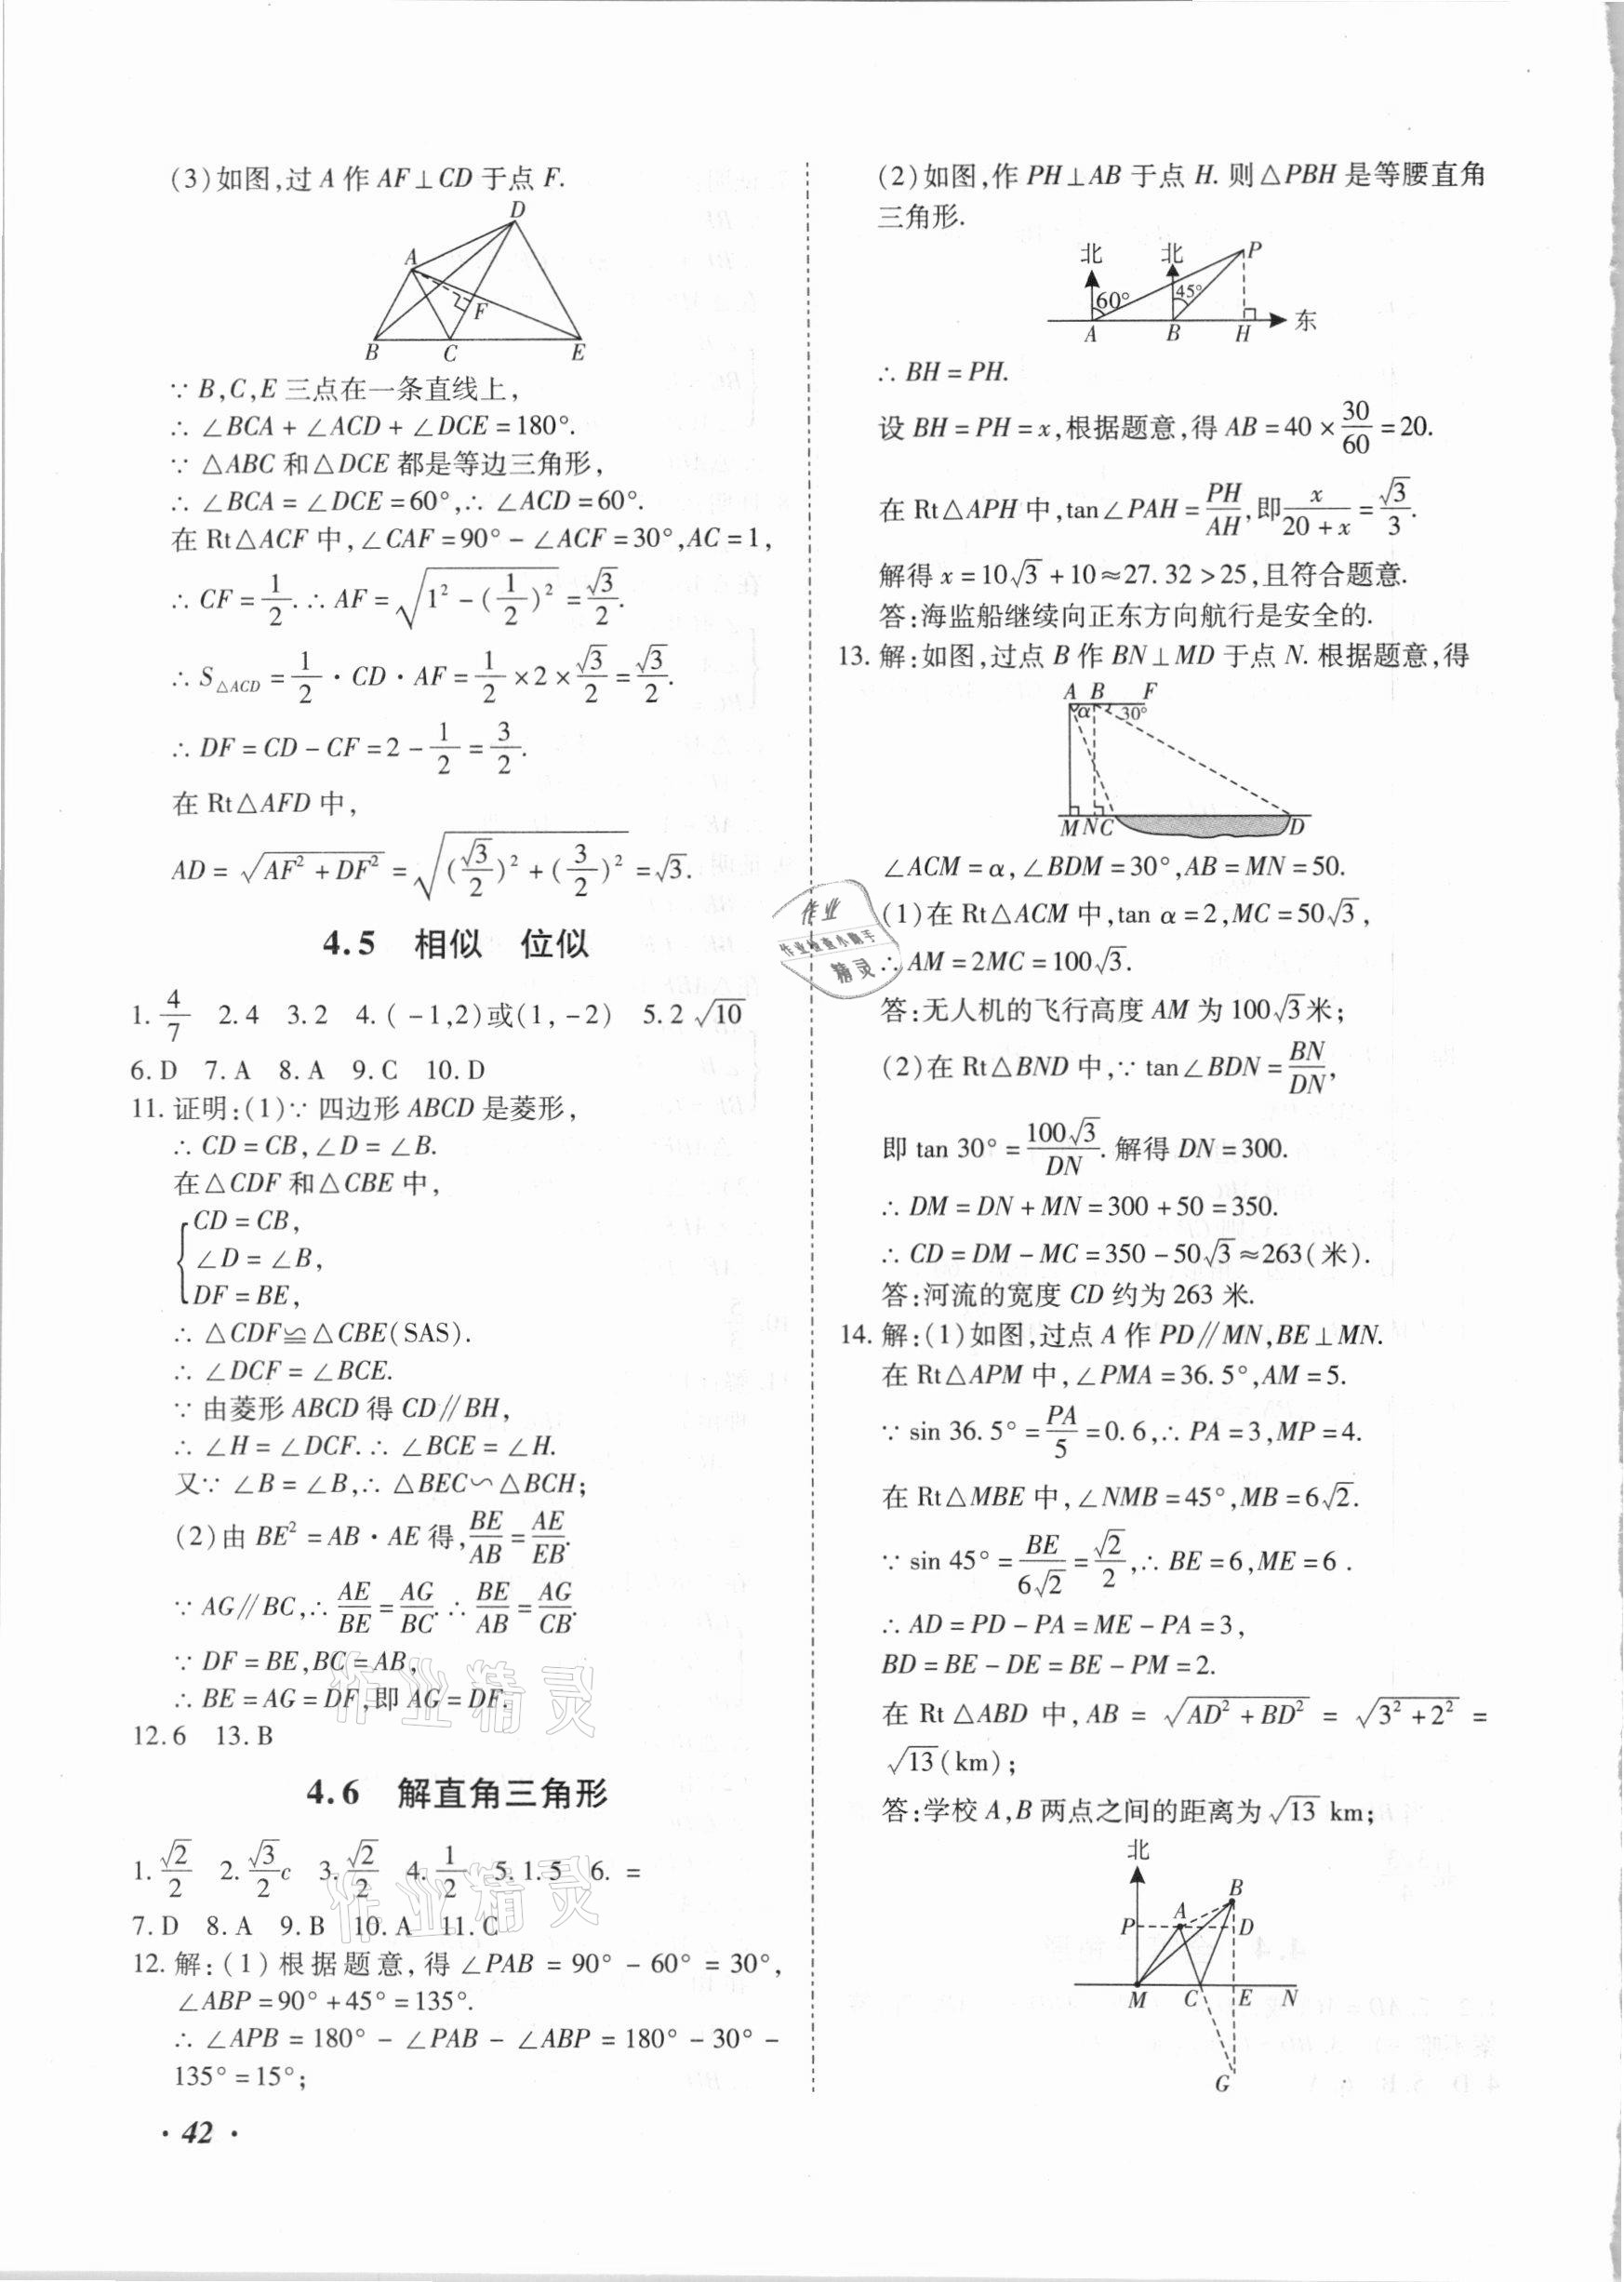 (3)如图,过 A 作 AF⊥CD 于点 F.
D
A
F
B C E
∵ B,C,E 三点在一条直线上,
∴ ∠BCA + ∠ACD + ∠DCE = 180°.
∵ △ABC 和△DCE 都是等边三角形,
∴ ∠BCA = ∠DCE = 60°,∴ ∠ACD = 60°.
在 Rt△ACF 中,∠CAF = 90° - ∠ACF = 30°,AC = 1,
∴ CF = 1/2. ∴ AF = √(1² - (1/2)²) = √3/2.
∴ S△ACD = 1/2 · CD · AF = 1/2 × 2 × √3/2 = √3/2.
∴ DF = CD - CF = 2 - 1/2 = 3/2.
在 Rt△AFD 中,
AD = √(AF² + DF²) = √((√3/2)² + (3/2)²) = √3.
4.5 相似 位似
1. 4/7 2.4 3.2 4.( -1,2)或(1, -2) 5.2√10
6.D 7.A 8.A 9.C 10.D
11. 证明:(1)∵ 四边形 ABCD 是菱形,
∴ CD = CB,∠D = ∠B.
在△CDF 和△CBE 中,
{CD = CB,
∠D = ∠B,
DF = BE,
∴ △CDF≌△CBE(SAS).
∴ ∠DCF = ∠BCE.
∵ 由菱形 ABCD 得 CD∥BH,
∴ ∠H = ∠DCF. ∴ ∠BCE = ∠H.
又∵ ∠B = ∠B,∴ △BEC∽△BCH;
(2)由 BE² = AB · AE 得, BE/AB = AE/EB.
∵ AG∥BC,∴ AE/BE = AG/BC. ∴ BE/AB = AG/CB.
∵ DF = BE,BC = AB,
∴ BE = AG = DF,即 AG = DF.
12.6 13.B
4.6 解直角三角形
1. √2/2 2. √3/2 c 3. √2/2 4. 1/2 5.1.5 6. =
7.D 8.A 9.B 10.A 11.C
12. 解:(1)根据题意,得 ∠PAB = 90° - 60° = 30°,
∠ABP = 90° + 45° = 135°.
∴ ∠APB = 180° - ∠PAB - ∠ABP = 180° - 30° -
135° = 15°;
· 42 ·
(2)如图,作 PH⊥AB 于点 H. 则△PBH 是等腰直角
三角形.
北 北 P
60° 45°
A B H 东
∴ BH = PH.
设 BH = PH = x,根据题意,得 AB = 40 × 30/60 = 20.
在 Rt△APH 中,tan∠PAH = PH/AH,即 x/(20 + x) = √3/3.
解得 x = 10√3 + 10≈27.32 > 25,且符合题意.
答:海监船继续向正东方向航行是安全的.
13. 解:如图,过点 B 作 BN⊥MD 于点 N. 根据题意,得
A B F
α 30°
M N C D
∠ACM = α,∠BDM = 30°,AB = MN = 50.
(1)在 Rt△ACM 中,tan α = 2,MC = 50√3,
∴ AM = 2MC = 100√3.
答:无人机的飞行高度 AM 为 100√3米;
(2)在 Rt△BND 中,∵ tan∠BDN = BN/DN,
即 tan 30° = 100√3/DN. 解得 DN = 300.
∴ DM = DN + MN = 300 + 50 = 350.
∴ CD = DM - MC = 350 - 50√3≈263(米).
答:河流的宽度 CD 约为 263 米.
14. 解:(1)如图,过点 A 作 PD∥MN,BE⊥MN.
在 Rt△APM 中,∠PMA = 36.5°,AM = 5.
∵ sin 36.5° = PA/5 = 0.6,∴ PA = 3,MP = 4.
在 Rt△MBE 中,∠NMB = 45°,MB = 6√2.
∵ sin 45° = BE/6√2 = √2/2,∴ BE = 6,ME = 6 .
∴ AD = PD - PA = ME - PA = 3,
BD = BE - DE = BE - PM = 2.
在 Rt△ABD 中,AB = √(AD² + BD²) = √(3² + 2²) =
√13(km);
答:学校 A,B 两点之间的距离为√13 km;
北
B
A
P D
M C E N
G
作业
作业检查小助手
精灵
作业精灵
作业精灵